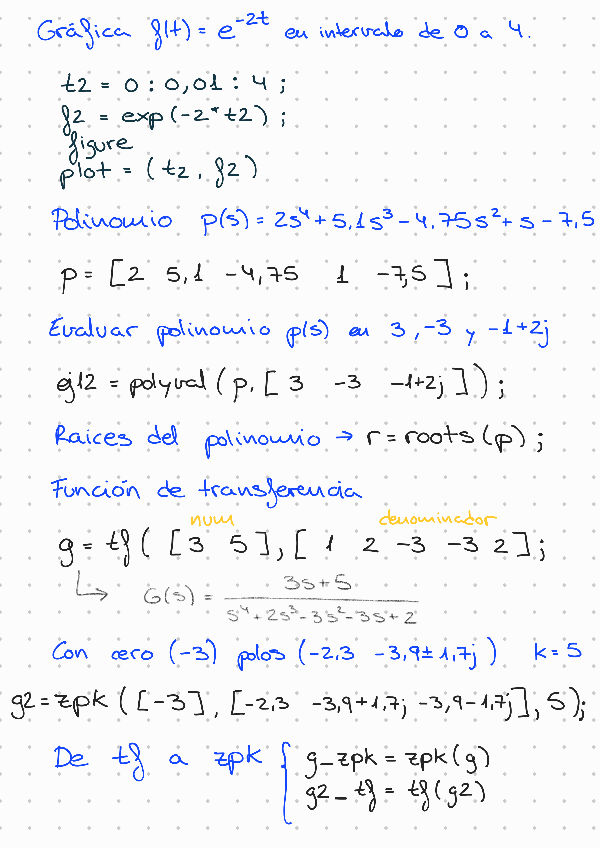 Gráfica f(t) = e^-2t en intervalo de 0 a 4.
t2 = 0 : 0,01 : 4 ;
f2 = exp(-2*t2) ;
figure
plot = (t2, f2)
Polinomio p(s) = 2s⁴+5,1s³-4,75s²+s-7,5
p = [2 5,1 -4,75 1 -7,5] ;
Evaluar polinomio p(s) en 3, -3 y -1+2j
ej12 = polyval(p, [3 -3 -1+2j]) ;
Raices del polinomio → r = roots(p) ;
Función de transferencia
num denominador
g = tf([3 5], [1 2 -3 -3 2] ;
↳ G(s) = 3s+5 / s⁴+2s³-3s²-3s+2
Con cero (-3) polos (-2,3 -3,9±1,7j) k=5
g2 = zpk([-3], [-2,3 -3,9+1,7j -3,9-1,7j], 5);
De tf a zpk { g_zpk = zpk(g)
g2_tf = tf(g2)